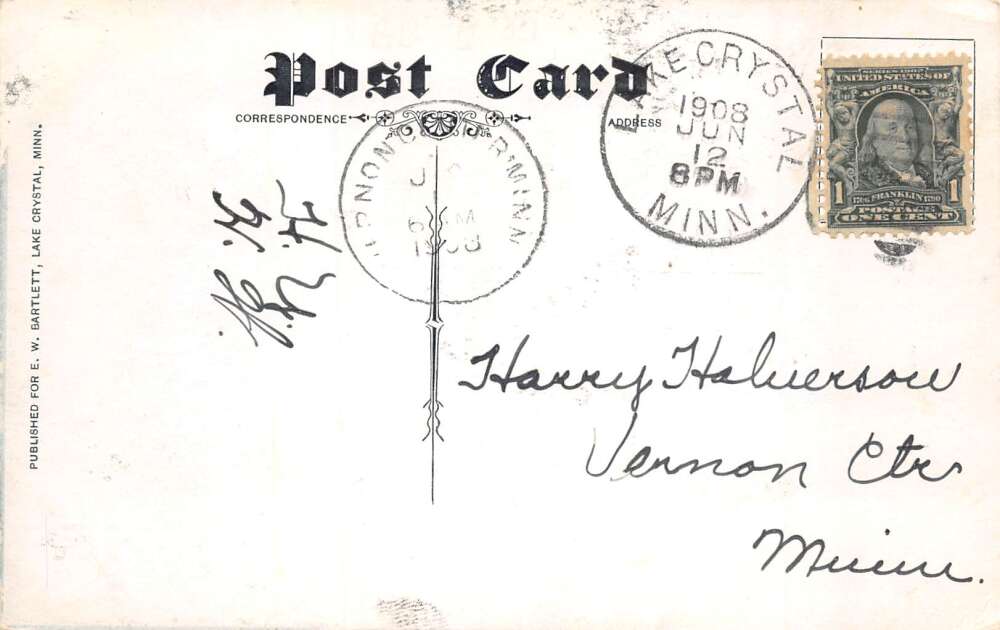 Post Card
CORRESPONDENCE
ADDRESS
LAKE CRYSTAL
1908
JUN
12
8PM
MINN.
SERIES 1902
UNITED STATES OF
AMERICA
1 1
1706 FRANKLIN 1790
POSTAGE
ONE CENT
MINN
1908
Harry Halverson
Vernon Ctr
Minn.
PUBLISHED FOR E. W. BARTLETT, LAKE CRYSTAL, MINN.